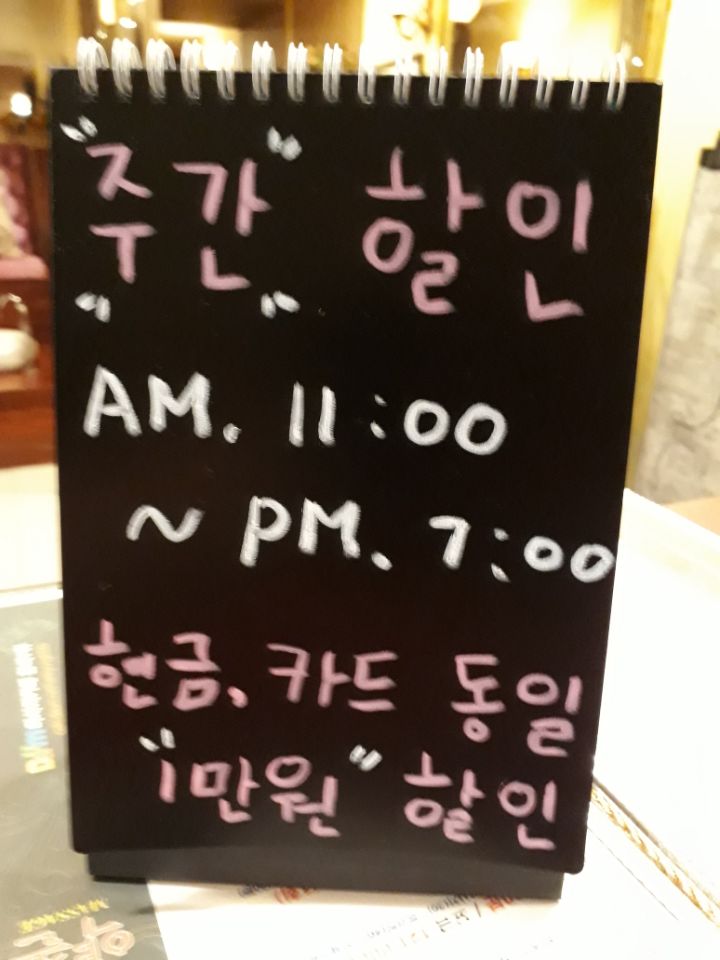 "주간" 할인
" "
AM. 11:00
~ PM. 7:00
현금, 카드 동일
"1만원" 할인